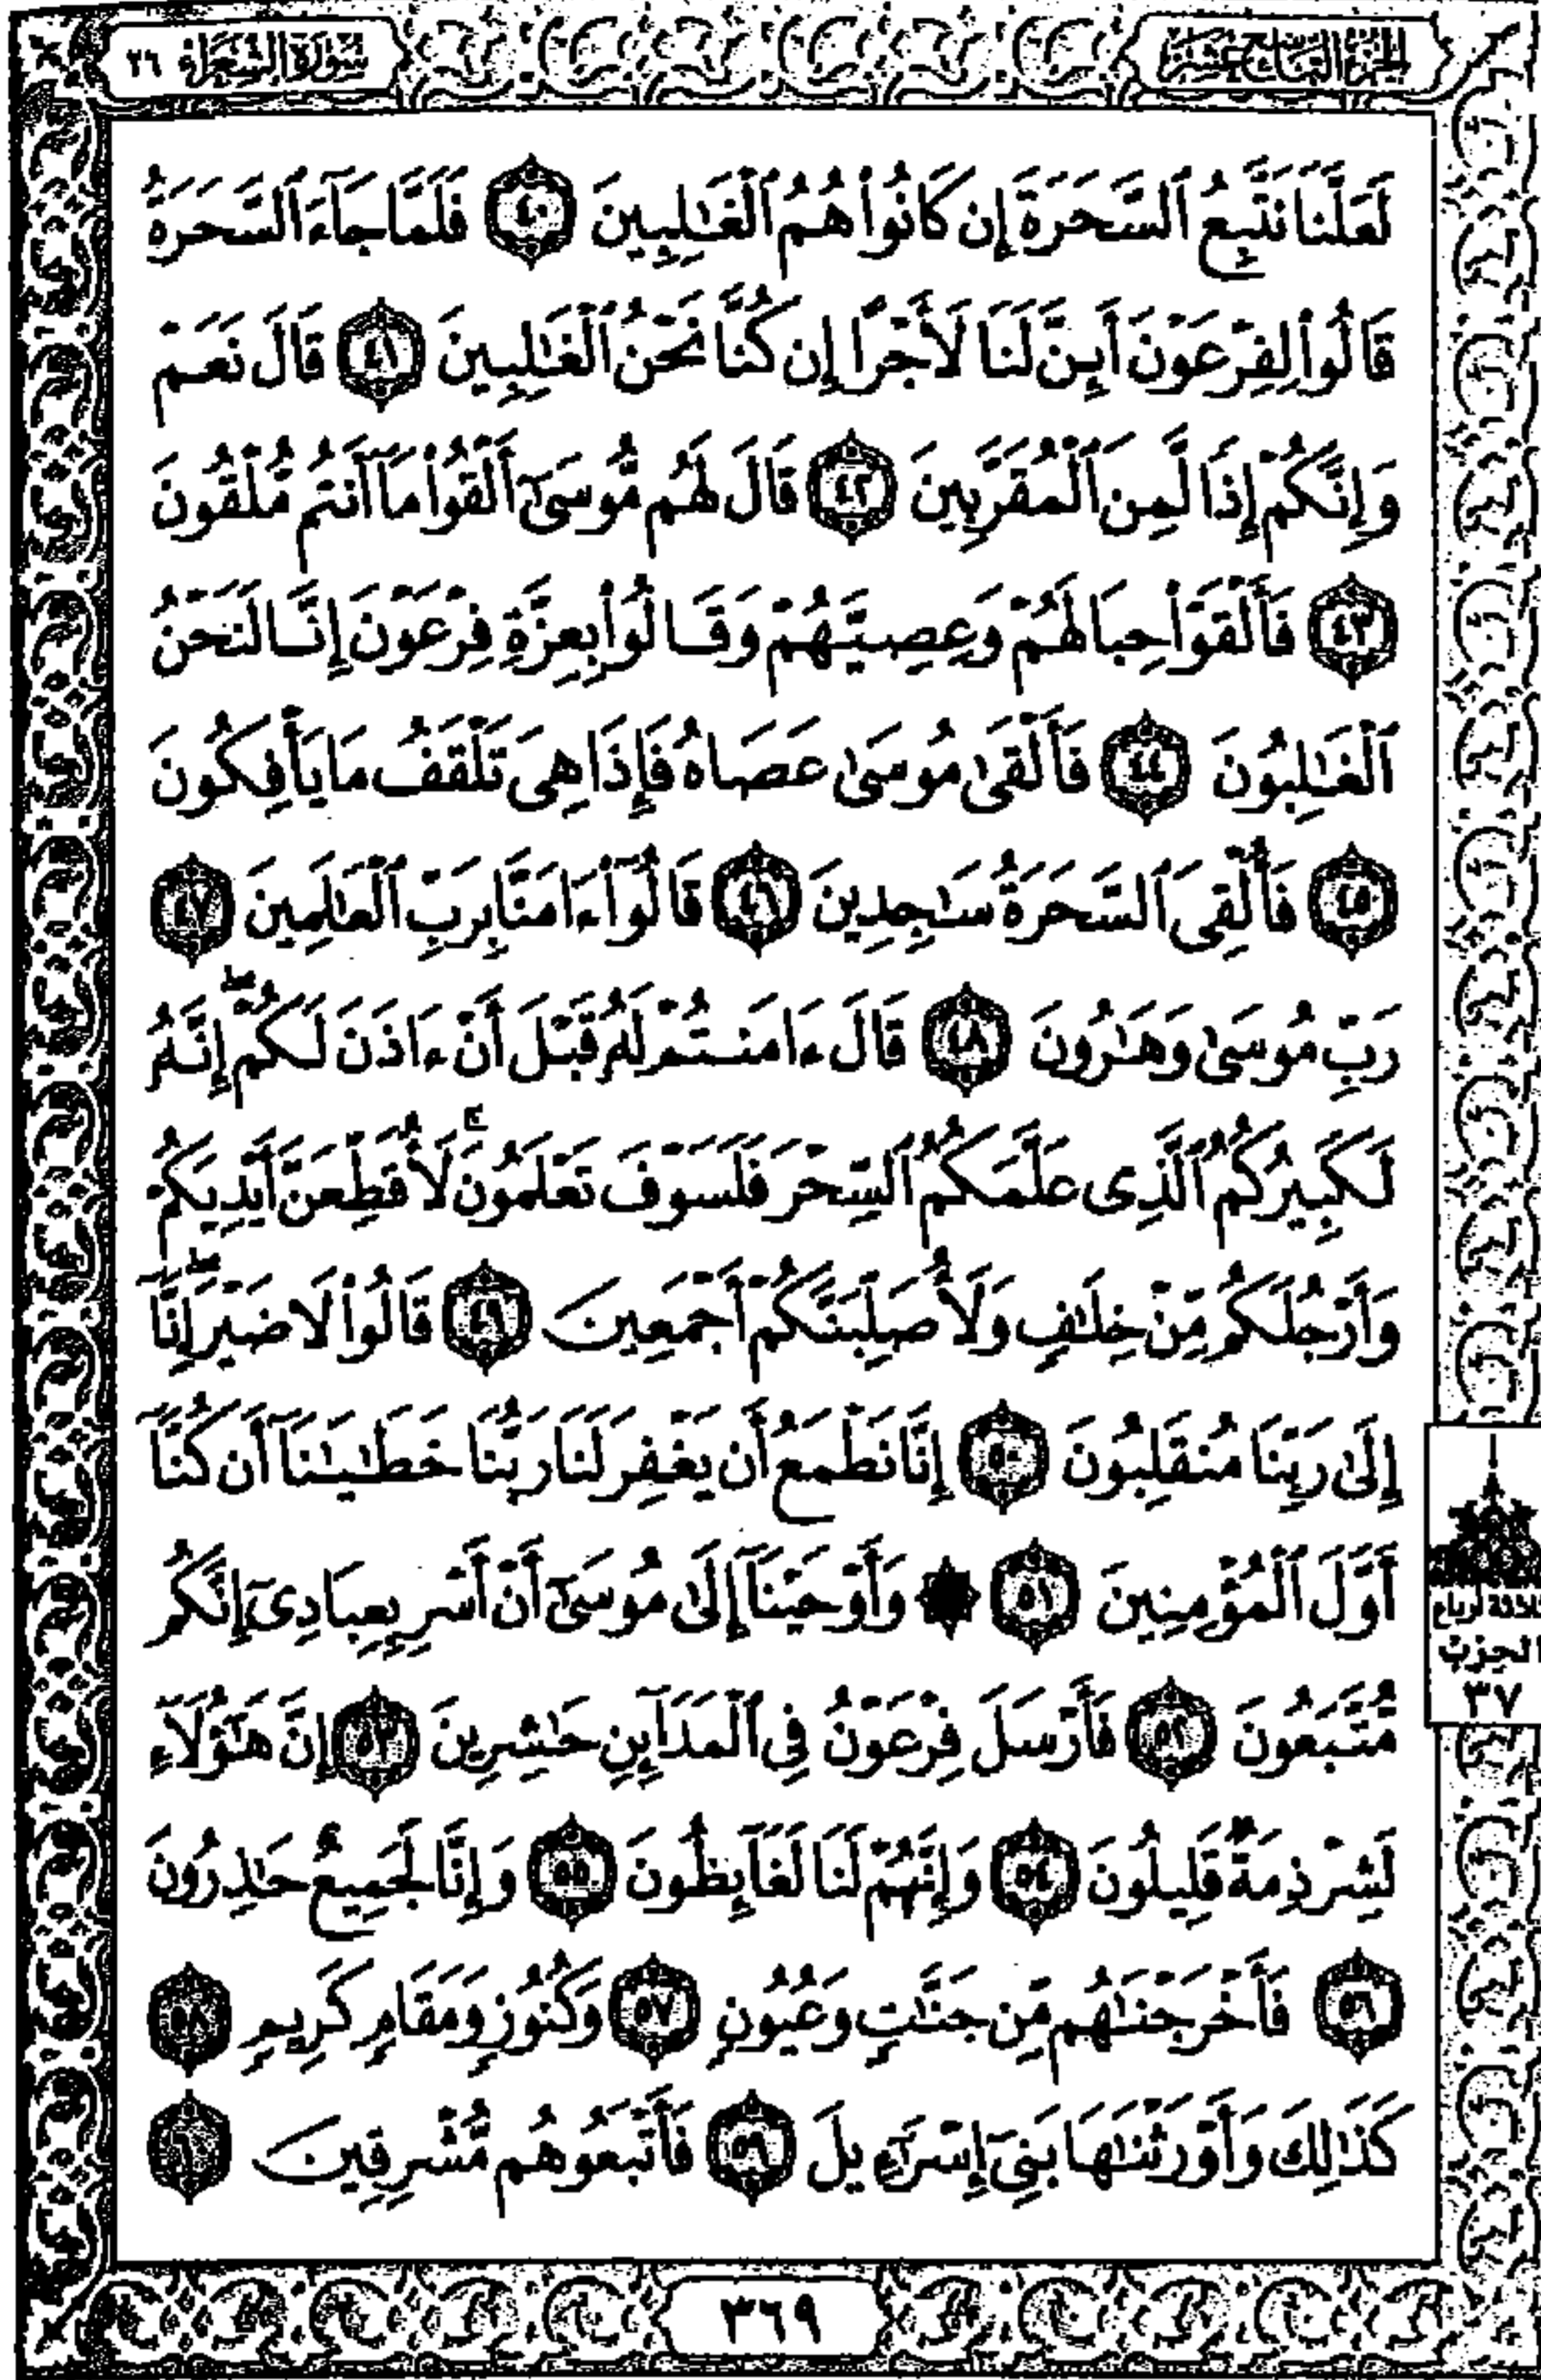 الجزء التاسع عشر
سورة الشعراء ٢٦
لَعَلَّنَا نَتَّبِعُ ٱلسَّحَرَةَ إِن كَانُوا۟ هُمُ ٱلْغَـٰلِبِينَ ٤٠ فَلَمَّا جَآءَ ٱلسَّحَرَةُ
قَالُوا۟ لِفِرْعَوْنَ أَئِنَّ لَنَا لَأَجْرًا إِن كُنَّا نَحْنُ ٱلْغَـٰلِبِينَ ٤١ قَالَ نَعَمْ
وَإِنَّكُمْ إِذًا لَّمِنَ ٱلْمُقَرَّبِينَ ٤٢ قَالَ لَهُم مُّوسَىٰٓ أَلْقُوا۟ مَآ أَنتُم مُّلْقُونَ
٤٣ فَأَلْقَوْا۟ حِبَالَهُمْ وَعِصِيَّهُمْ وَقَالُوا۟ بِعِزَّةِ فِرْعَوْنَ إِنَّا لَنَحْنُ
ٱلْغَـٰلِبُونَ ٤٤ فَأَلْقَىٰ مُوسَىٰ عَصَاهُ فَإِذَا هِىَ تَلْقَفُ مَا يَأْفِكُونَ
٤٥ فَأُلْقِىَ ٱلسَّحَرَةُ سَـٰجِدِينَ ٤٦ قَالُوٓا۟ ءَامَنَّا بِرَبِّ ٱلْعَـٰلَمِينَ ٤٧
رَبِّ مُوسَىٰ وَهَـٰرُونَ ٤٨ قَالَ ءَامَنتُمْ لَهُۥ قَبْلَ أَنْ ءَاذَنَ لَكُمْ ۖ إِنَّهُۥ
لَكَبِيرُكُمُ ٱلَّذِى عَلَّمَكُمُ ٱلسِّحْرَ فَلَسَوْفَ تَعْلَمُونَ ۚ لَأُقَطِّعَنَّ أَيْدِيَكُمْ
وَأَرْجُلَكُم مِّنْ خِلَـٰفٍ وَلَأُصَلِّبَنَّكُمْ أَجْمَعِينَ ٤٩ قَالُوا۟ لَا ضَيْرَ ۖ إِنَّآ
إِلَىٰ رَبِّنَا مُنقَلِبُونَ ٥٠ إِنَّا نَطْمَعُ أَن يَغْفِرَ لَنَا رَبُّنَا خَطَـٰيَـٰنَآ أَن كُنَّآ
أَوَّلَ ٱلْمُؤْمِنِينَ ٥١ ۞ وَأَوْحَيْنَآ إِلَىٰ مُوسَىٰٓ أَنْ أَسْرِ بِعِبَادِىٓ إِنَّكُم
مُّتَّبَعُونَ ٥٢ فَأَرْسَلَ فِرْعَوْنُ فِى ٱلْمَدَآئِنِ حَـٰشِرِينَ ٥٣ إِنَّ هَـٰٓؤُلَآءِ
لَشِرْذِمَةٌ قَلِيلُونَ ٥٤ وَإِنَّهُمْ لَنَا لَغَآئِظُونَ ٥٥ وَإِنَّا لَجَمِيعٌ حَـٰذِرُونَ
٥٦ فَأَخْرَجْنَـٰهُم مِّن جَنَّـٰتٍ وَعُيُونٍ ٥٧ وَكُنُوزٍ وَمَقَامٍ كَرِيمٍ ٥٨
كَذَٰلِكَ وَأَوْرَثْنَـٰهَا بَنِىٓ إِسْرَٰٓءِيلَ ٥٩ فَأَتْبَعُوهُم مُّشْرِقِينَ ٦٠
ثلاثة أرباع
الحزب
٣٧
٣٦٩